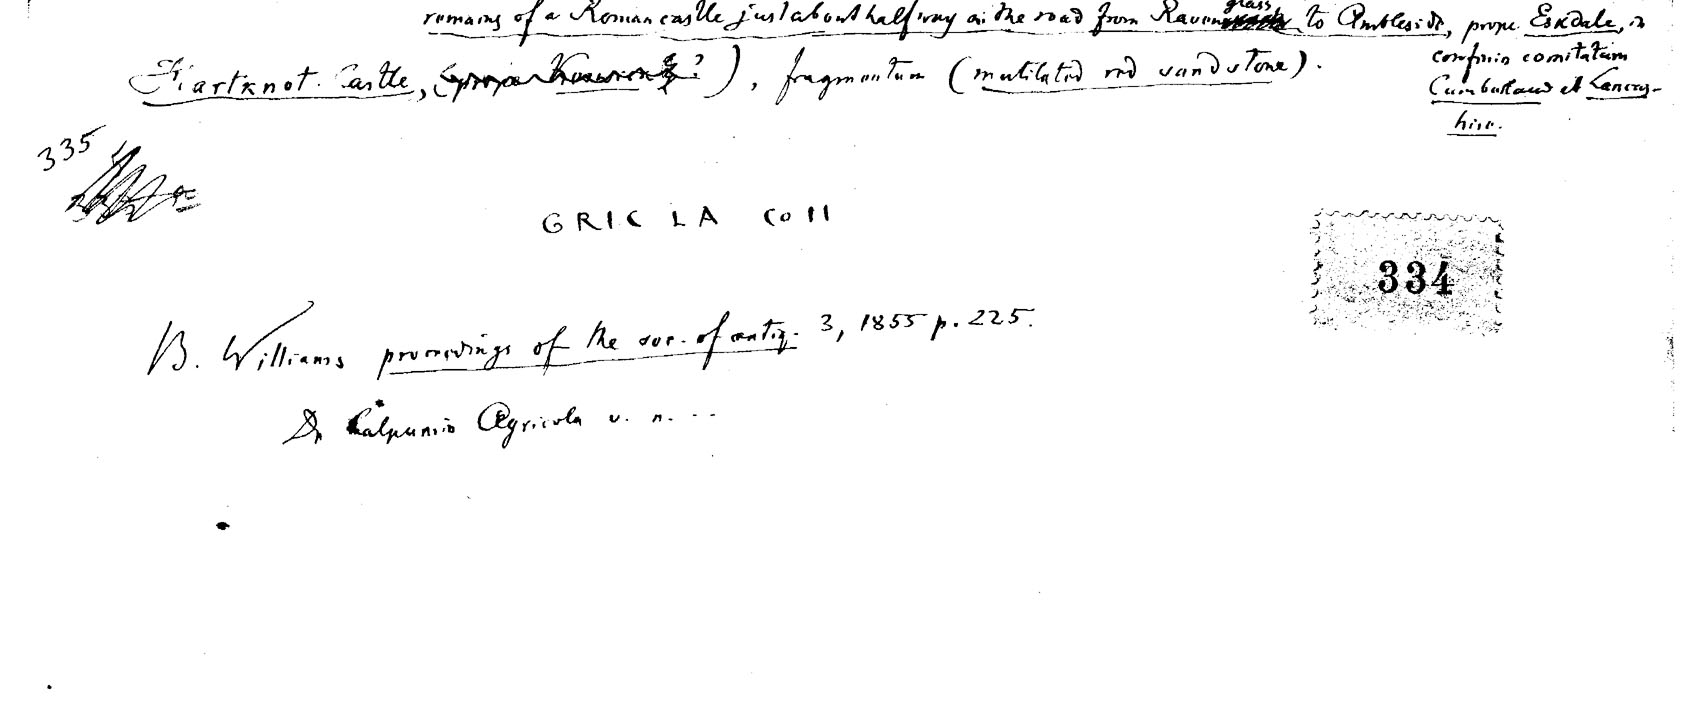 remains of a Roman castle just about halfway on the road from Ravenglass to Ambleside, prope Eskdale, in
confinio comitatum
Cumberland et Lancas-
hire.
Hartknot Castle, ), fragmentum (mutilated red sandstone).
335
GRIC LA COII
334
B. Williams proceedings of the soc. of antiq. 3, 1855 p. 225.
De Calpurnio Agricola v. n. ...